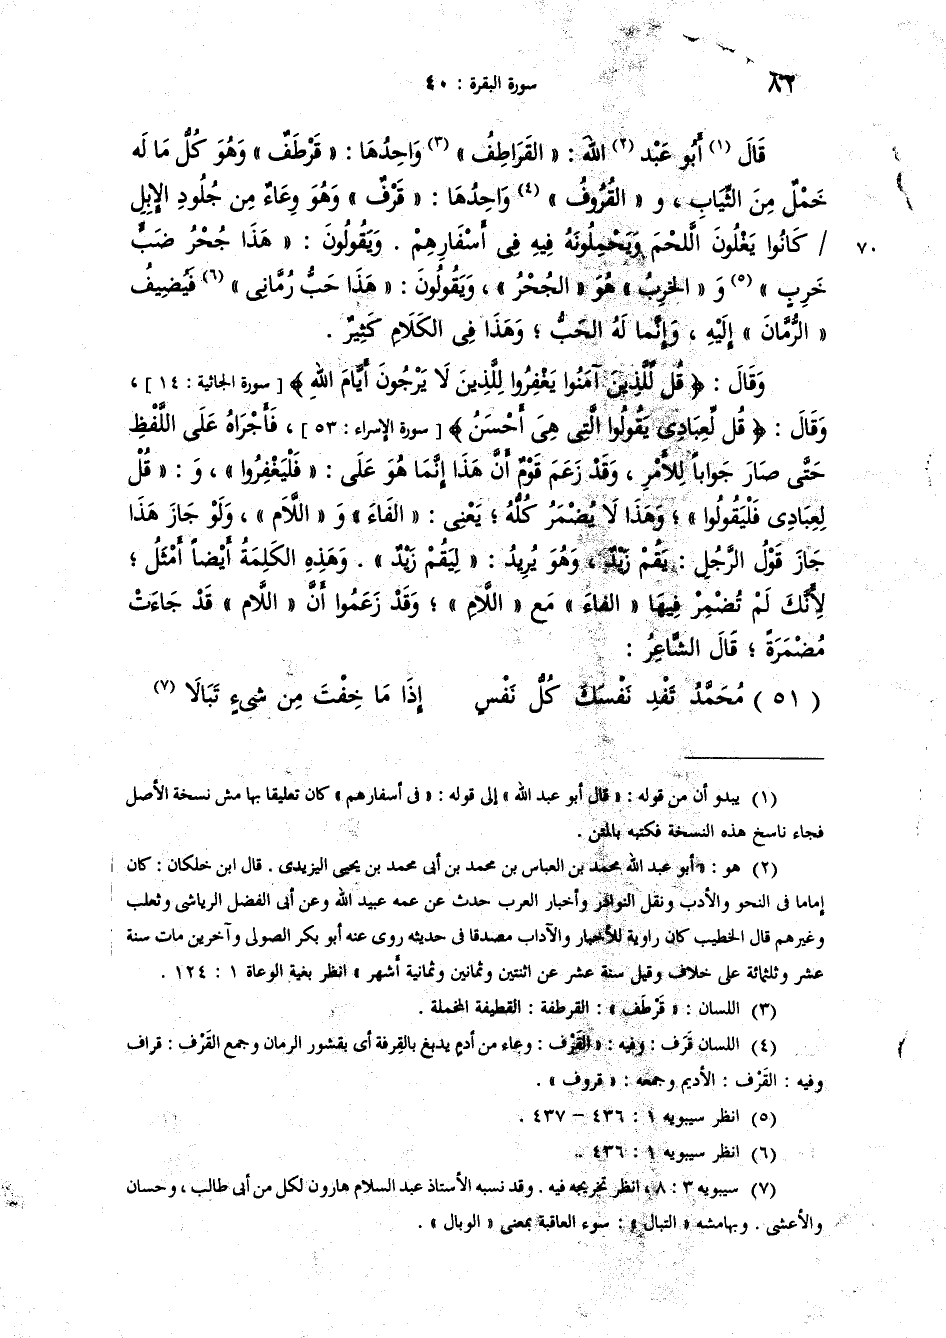 ٨٢ سورة البقرة : ٤٠
قَالَ (١) أَبُو عَبْد (٢) اللَّه : « القَرَاطِفُ » (٣) وَاحِدُهَا : « قَرْطَفٌ » وَهُوَ كُلُّ مَا لَه
خَمْلٌ مِنَ الثِّيَابِ ، و « القُرُوفُ » (٤) وَاحِدُهَا : « قَرْفٌ » وَهُوَ وِعَاءٌ مِن جُلُودِ الإِبِلِ
٧٠ / كَانُوا يَغْلُونَ اللَّحْمَ وَيَحْمِلُونَهُ فِيهِ فِى أَسْفَارِهِمْ . وَيَقُولُونَ : « هَذَا جُحْرُ ضَبٍّ
خَرِبٍ » (٥) وَ « الخَرِبُ » هُوَ « الجُحْرُ » ، وَيَقُولُونَ : « هَذَا حَبُّ رُمَّانِى » (٦) فَيُضِيفُ
« الرُّمَّانَ » إِلَيْهِ ، وَإِنَّما لَهُ الحَبُّ ؛ وَهَذَا فِى الكَلَامِ كَثِيرٌ .
وَقَالَ : ﴿ قُل لِّلَّذِينَ آمَنُوا يَغْفِرُوا لِلَّذِينَ لَا يَرْجُونَ أَيَّامَ اللهِ ﴾ [ سورة الجاثية : ١٤ ] ،
وَقَالَ : ﴿ قُل لِّعِبَادِى يَقُولُوا الَّتِى هِىَ أَحْسَنُ ﴾ [ سورة الإسراء : ٥٣ ] ، فَأَجْرَاهُ عَلَى اللَّفْظِ
حَتَّى صَارَ جَوَاباً لِلأَمْرِ ، وَقَدْ زَعَمَ قَوْمٌ أَنَّ هَذَا إِنَّمَا هُوَ عَلَى : « فَلْيَغْفِرُوا » ، وَ : « قُلْ
لِعِبَادِى فَلْيَقُولُوا » ؛ وَهَذَا لَا يُضْمَرُ كُلُّهُ ؛ يَعْنِى : « الفَاءَ » وَ « اللَّام » ، وَلَوْ جَازَ هَذَا
جَازَ قَوْلُ الرَّجُلِ : يَقُمْ زَيْدٌ ، وَهُوَ يُرِيدُ : « لِيَقُمْ زَيْدٌ » . وَهَذِهِ الكَلِمَةُ أَيْضاً أَمْثَلُ ؛
لِأَنَّكَ لَمْ تُضْمِرْ فِيهَا « الفاءَ » مَع « اللَّامِ » ؛ وَقَدْ زَعَمُوا أَنَّ « اللَّام » قَدْ جَاءَتْ
مُضْمَرَةً ؛ قَالَ الشَّاعِرُ :
( ٥١ ) مُحَمَّدُ تَفْدِ نَفْسَكَ كُلُّ نَفْسٍ إِذَا مَا خِفْتَ مِن شَىءٍ تَبَالَا (٧)
(١) يبدو أن من قوله : « قال أبو عبد الله » إلى قوله : « فى أسفارهم » كان تعليقا بهامش نسخة الأصل
فجاء ناسخ هذه النسخة فكتبه بالمتن .
(٢) هو : « أبو عبد الله محمد بن العباس بن محمد بن أبى محمد بن يحيى اليزيدى . قال ابن خلكان : كان
إماما فى النحو والأدب ونقل النوادر وأخبار العرب حدث عن عمه عبيد الله وعن أبى الفضل الرياشى وثعلب
وغيرهم قال الخطيب كان راوية للأخبار والآداب مصدقا فى حديثه روى عنه أبو بكر الصولى وآخرين مات سنة
عشر وثلثمائة على خلاف وقيل سنة عشر عن اثنتين وثمانين وثمانية أشهر » انظر بغية الوعاة ١ : ١٢٤ .
(٣) اللسان : « قَرْطَف » : القرطفة : القطيفة المخملة .
(٤) اللسان قَرَف : وفيه : « القَرْف : وعاء من أدمٍ يدبغ بالقِرفة أى بقشور الرمان وجمع القَرْف : قراف
وفيه : القَرْف : الأديم وجمعه : « قروف » .
(٥) انظر سيبويه ١ : ٤٣٦ – ٤٣٧ .
(٦) انظر سيبويه ١ : ٤٣٦ .
(٧) سيبويه ٣ : ٨ ، انظر تخريجه فيه . وقد نسبه الأستاذ عبد السلام هارون لكل من أبى طالب ، وحسان
والأعشى . وبهامشه « التبال » : سوء العاقبة بمعنى « الوبال » .